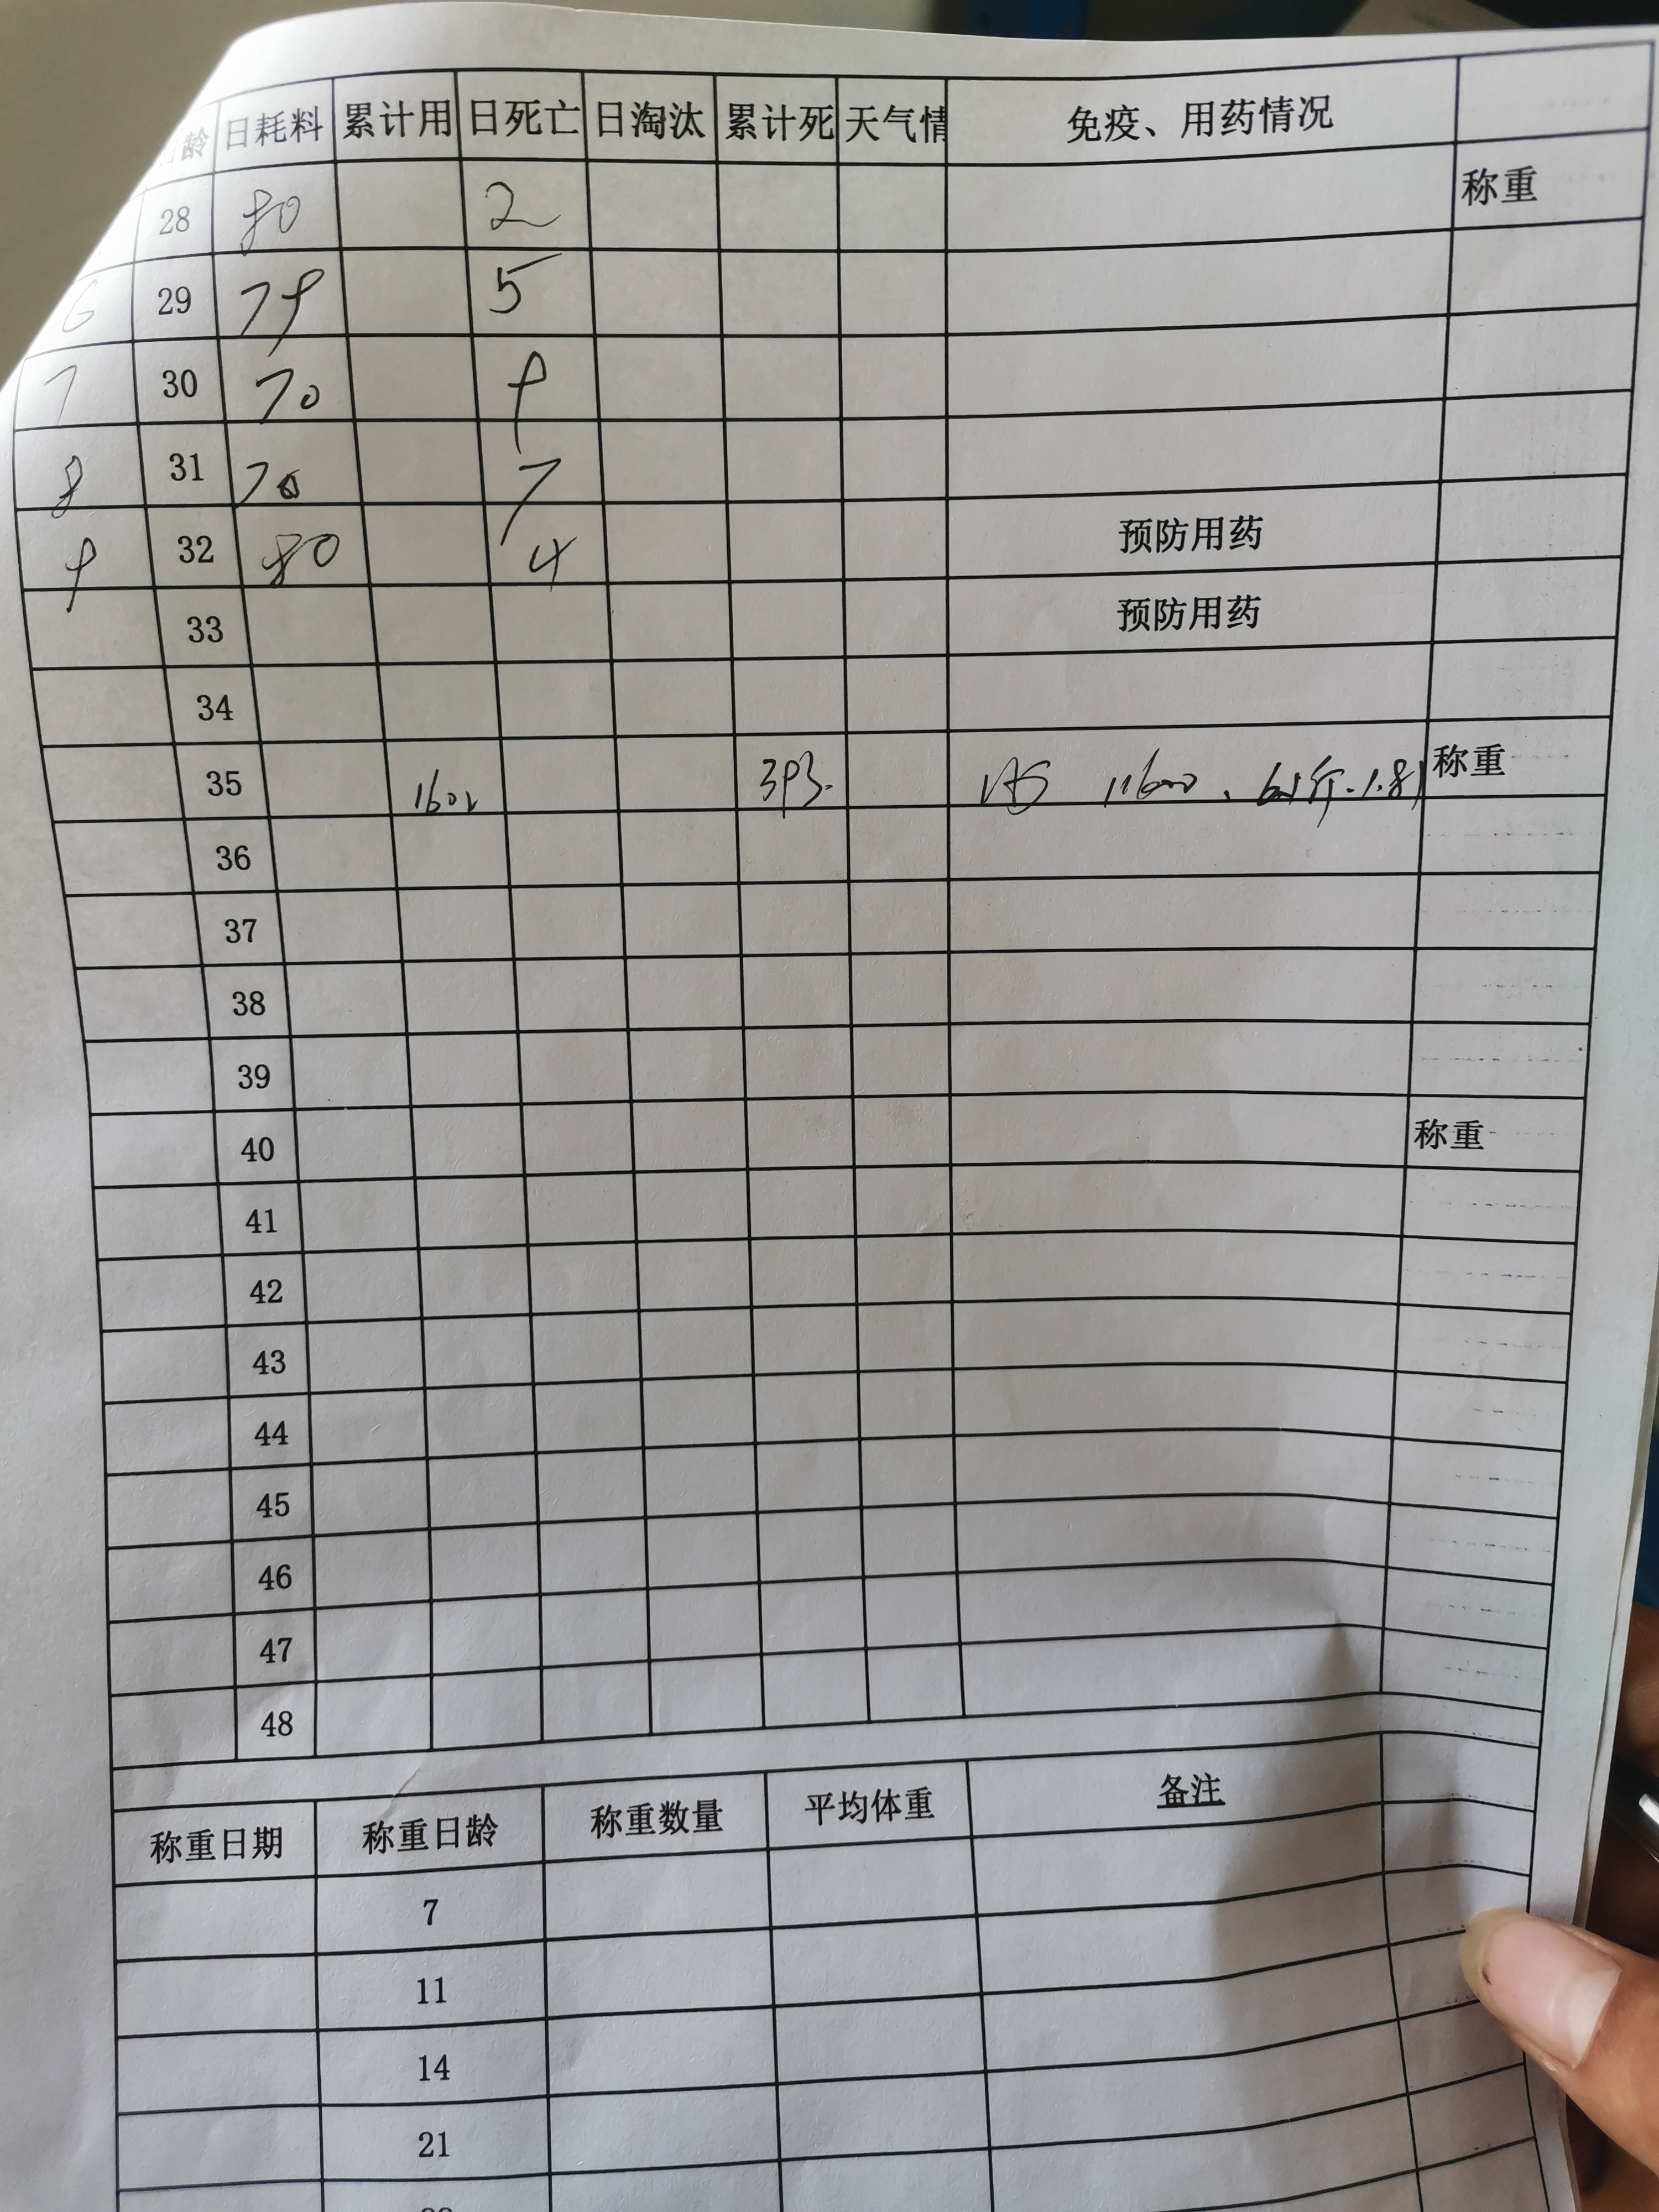 龄 日耗料 累计用 日死亡 日淘汰 累计死 天气情 免疫、用药情况
28 80 2 称重
6 29 79 5
7 30 70 9
8 31 70 7
9 32 80 4 预防用药
33 预防用药
34
35 1602 393. 称重
36
37
38
39
40 称重
41
42
43
44
45
46
47
48
称重日期 称重日龄 称重数量 平均体重 备注
7
11
14
21